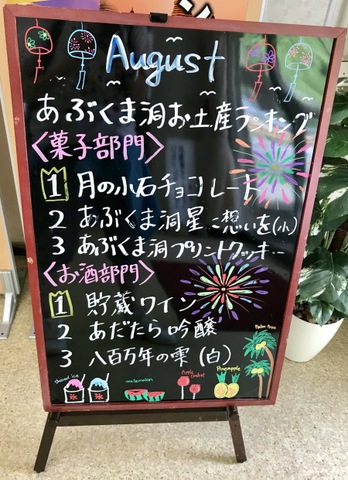 August
あぶくま洞お土産ランキング
<菓子部門>
1 月の小石チョコレート
2 あぶくま洞星に想いを(小)
3 あぶくま洞プリントクッキー
<お酒部門>
1 貯蔵ワイン
2 あだたら吟醸
3 八百万年の雫(白)
Palm tree
Shaved ice
watermelon
Apple Candy
Pineapple
氷
氷